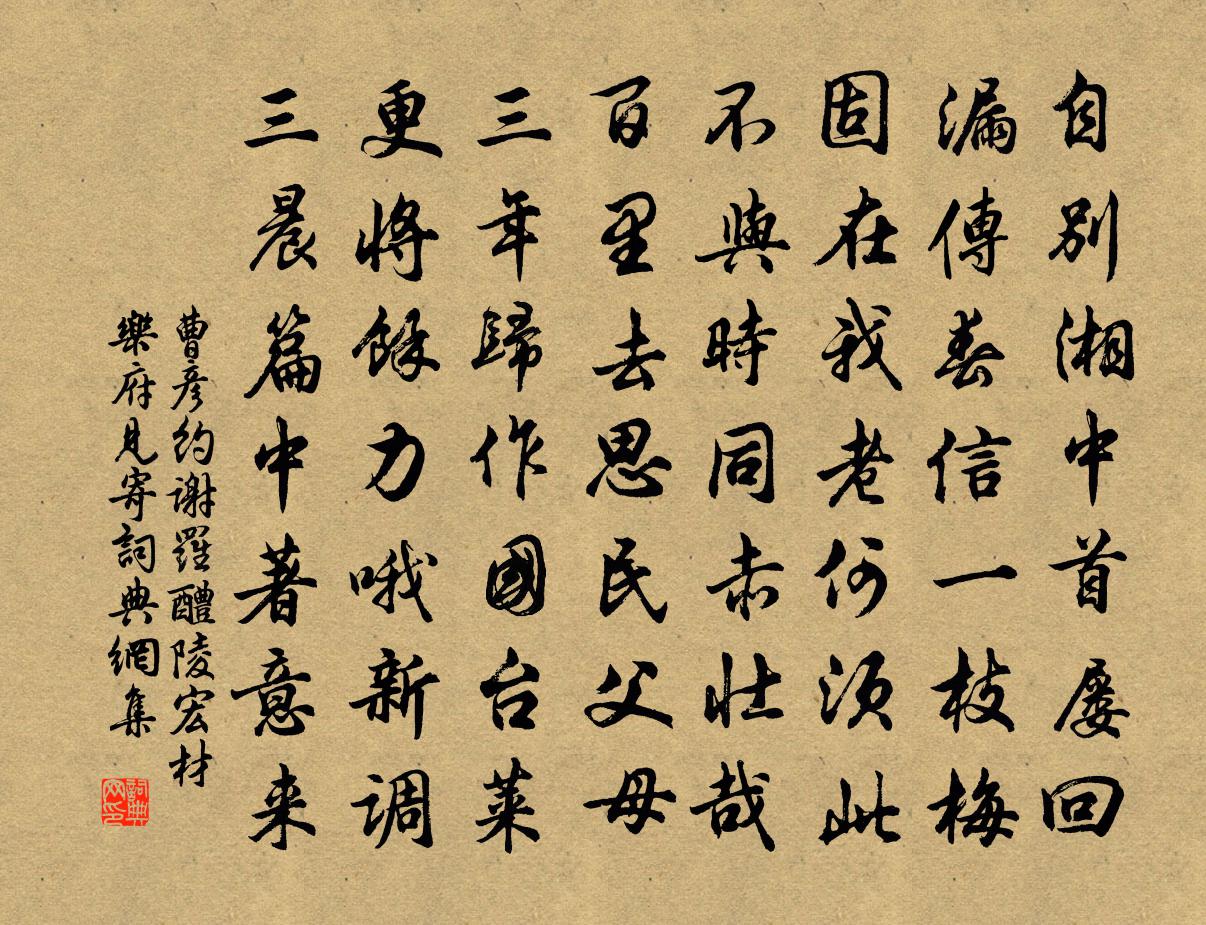 自別湘中首屡回
漏傳春信一枝梅
固在我老何須此
不與時同亦壯哉
百里去思民父母
三年歸作國台萊
更將餘力哦新调
三晨篇中著意来
曹彦約謝羅醴陵宏材
樂府見寄詞典網集
詞典网印